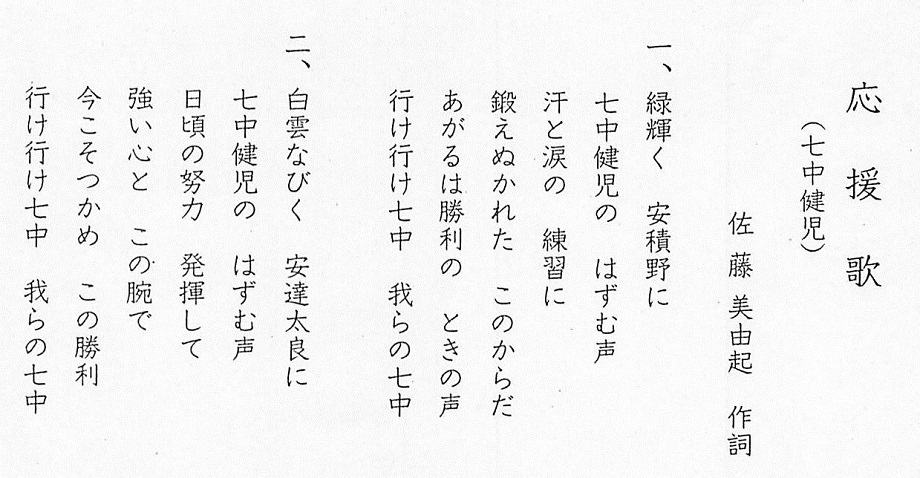 応援歌
（七中健児）
佐藤美由起 作詞
一、緑輝く 安積野に
七中健児の はずむ声
汗と涙の 練習に
鍛えぬかれた このからだ
あがるは勝利の ときの声
行け行け七中 我らの七中
二、白雲なびく 安達太良に
七中健児の はずむ声
日頃の努力 発揮して
強い心と この腕で
今こそつかめ この勝利
行け行け七中 我らの七中